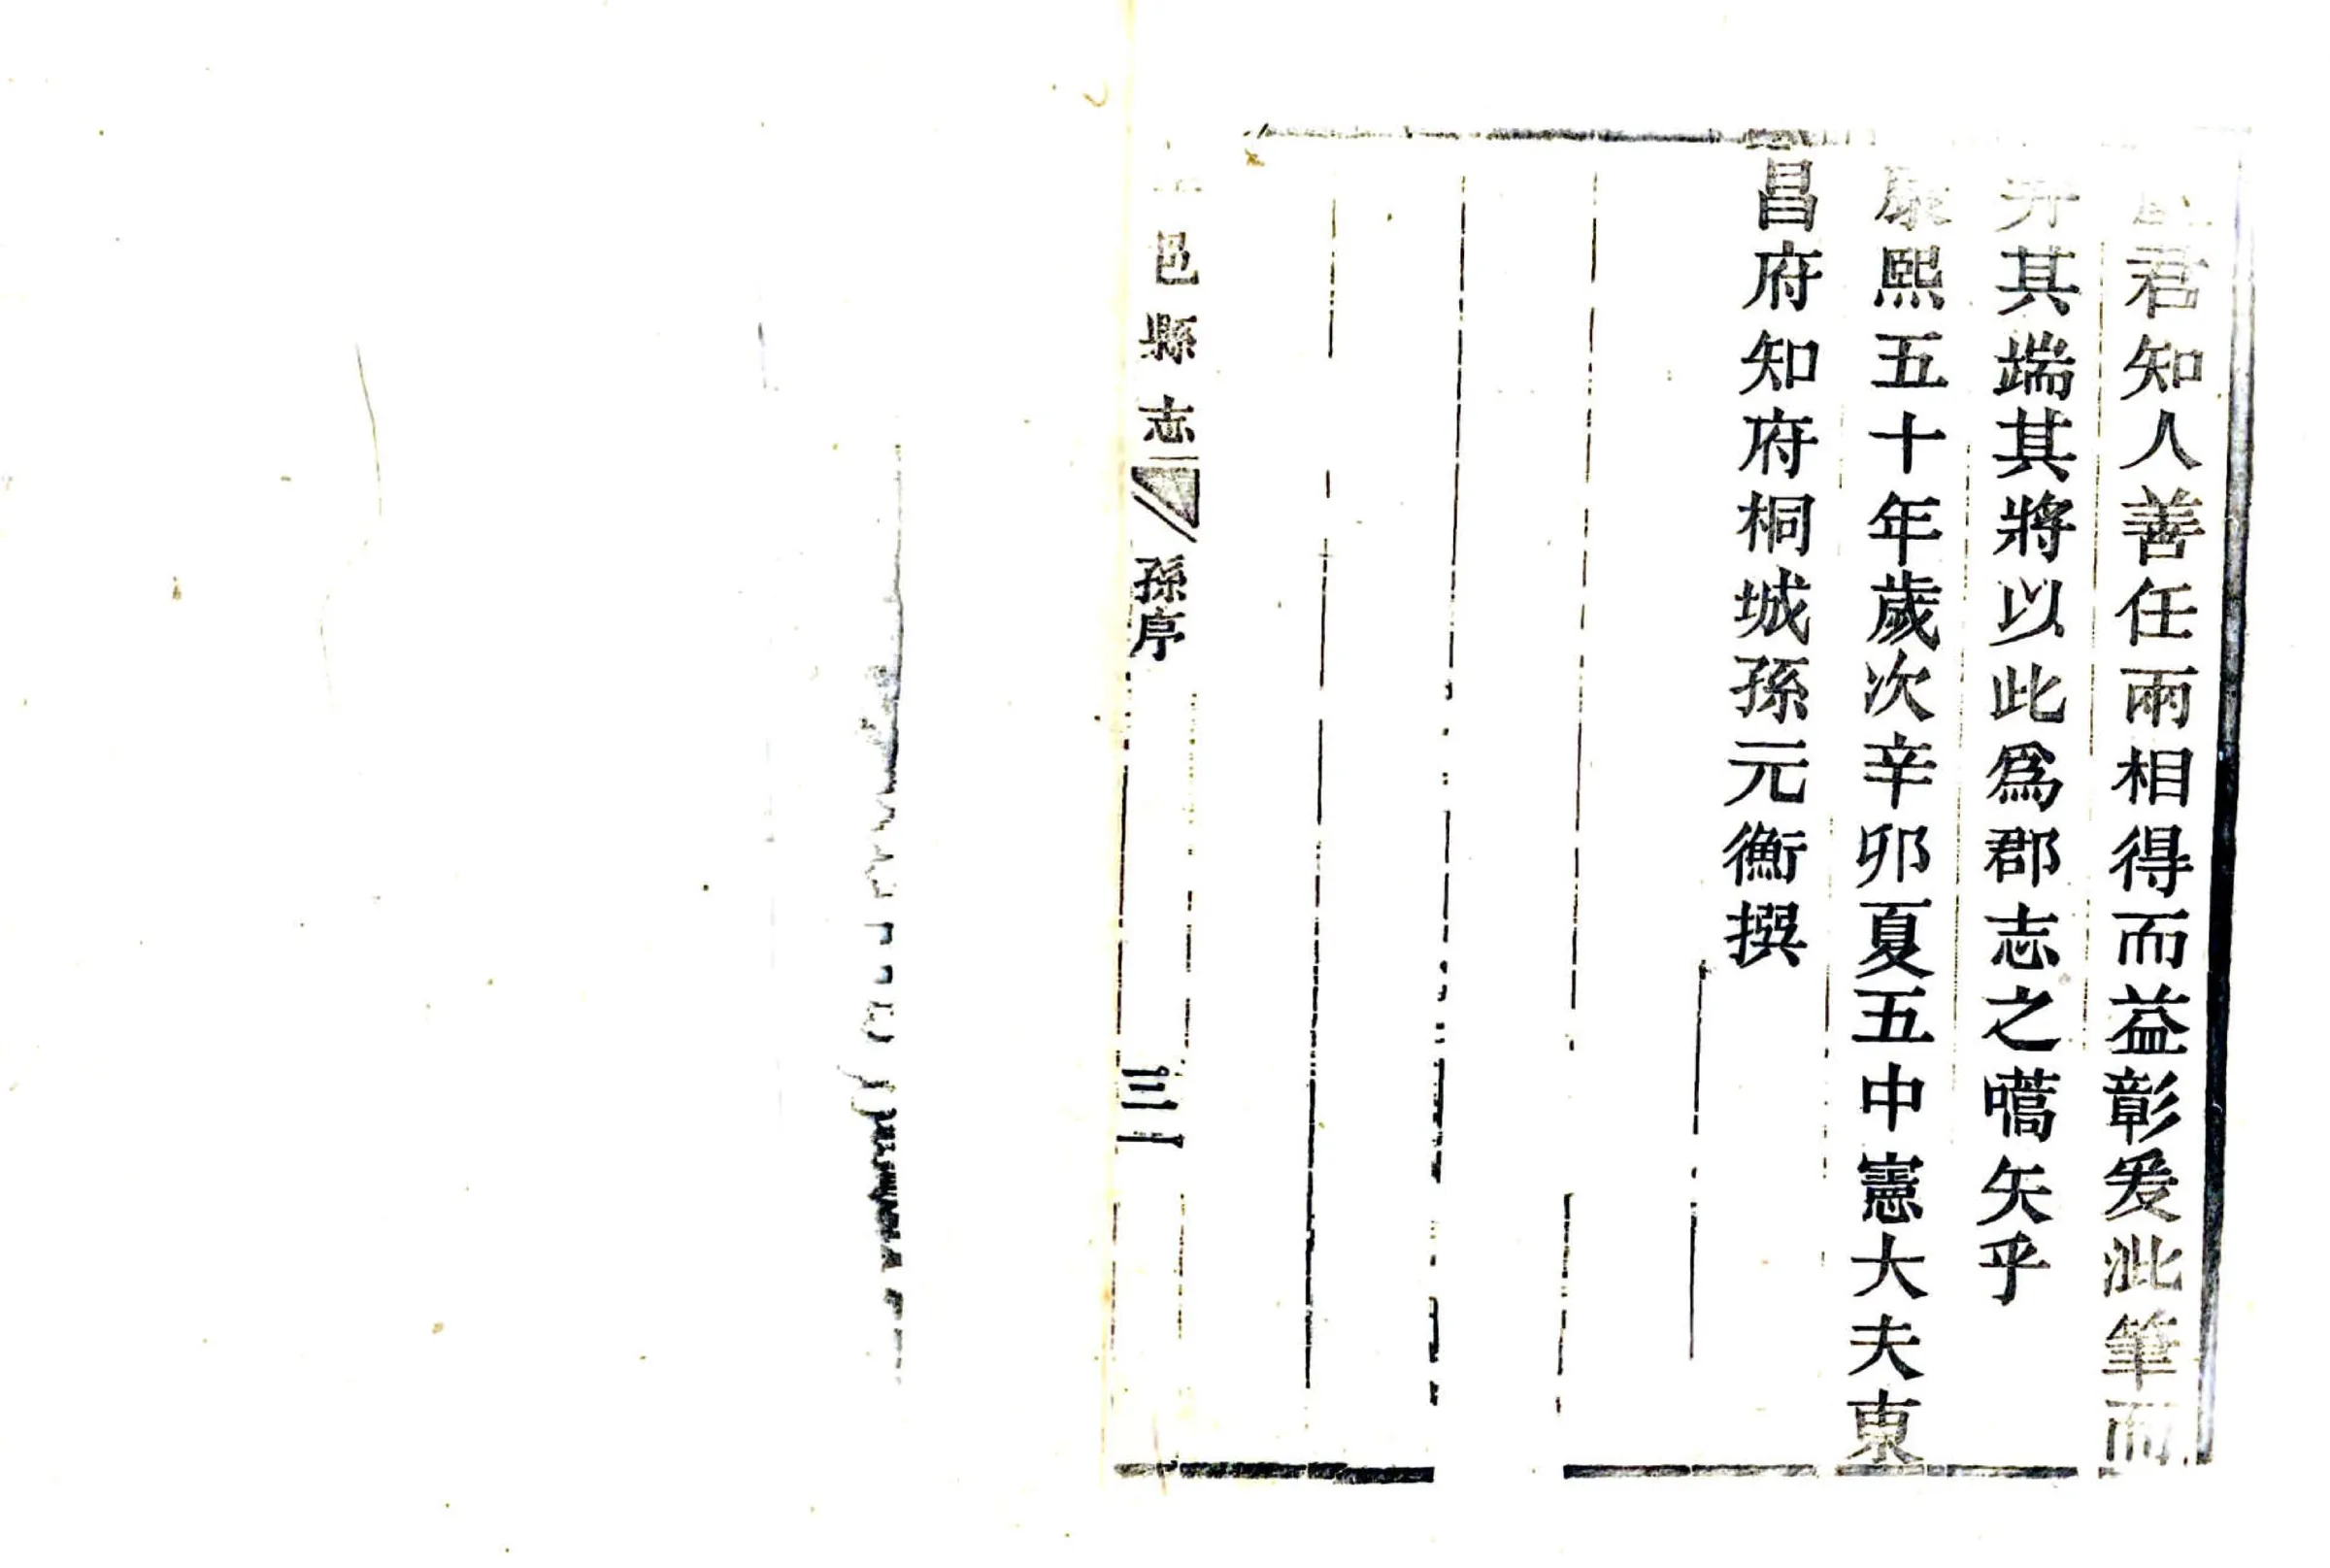 君知人善任兩相得而益彰爰泚筆而
弁其端其將以此爲郡志之嚆矢乎
康熙五十年歲次辛卯夏五中憲大夫東
昌府知府桐城孫元衡撰
邑縣志
孫序
三